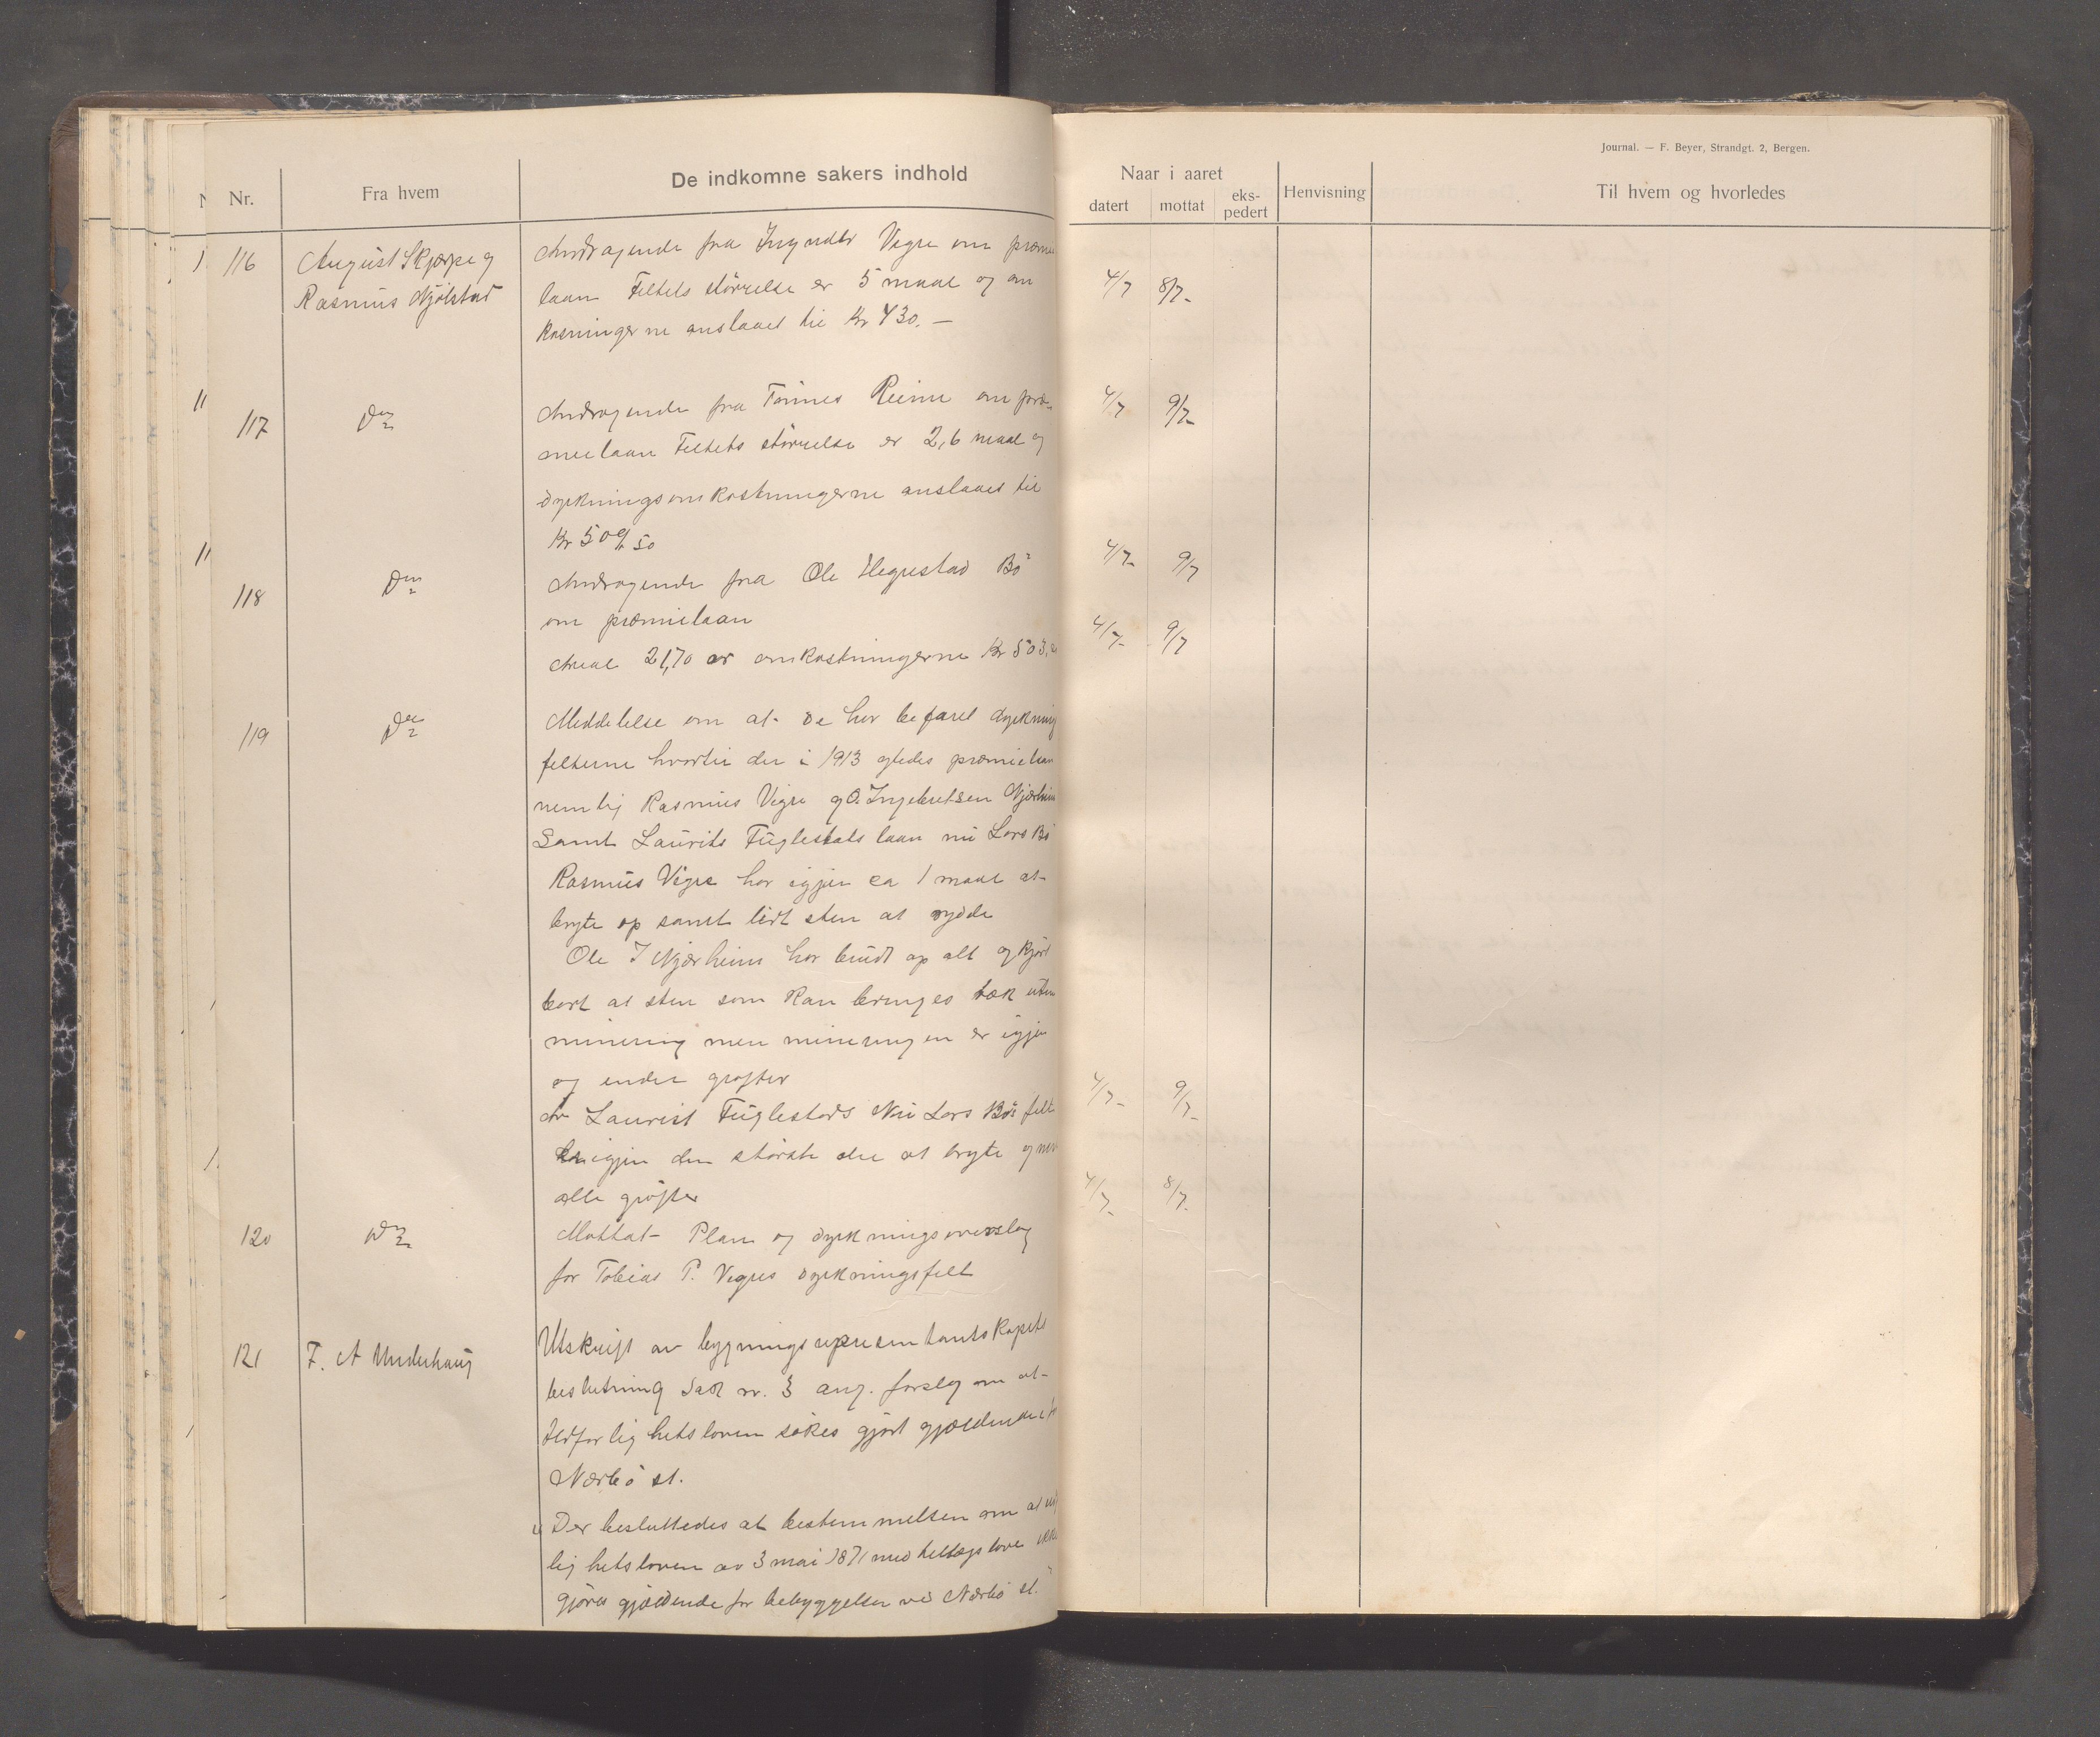 Journal. — F. Beyer, Strandgt. 2, Bergen.
Nr. Fra hvem De indkomne sakers indhold Naar i aaret datert mottat eks-pedert Henvisning Til hvem og hvorledes
116 August Skjærpe og Andragende fra Vegre om præmie
Rasmus Njølstad laan Feltets størrelse er 5 maal og om 4/7 8/7
kosningerne anslaaet til Kr 430.—
117 Do Andragende fra Tønnes Reime om præ- 4/7 9/7
mielaan Feltets størrelse er 2,6 maal og
dyrkningsomkostningerne anslaaes til
Kr 509,50
118 Do Andragende fra Ole Hegrestad Bø 4/7 9/7
om præmielaan
Areal 21,70 ar omkostningerne Kr 503, 4/7 9/7
119 Do Meddelelse om at de har befaret dyrkning
felterne hvortil der i 1913 ytedes præmielaan
nemlig Rasmus Vigre og O. Ingebretsen Njærheim
Samt Laurits Fuglestads laan nu Lars Bø
Rasmus Vigre har igjen ca 1 maal at
bryte op samt lidt sten at rydde
Ole I Njærheim har brudt op alt og kjørt
bort al sten som kan bringes væk uten
minering men mineringen er igjen
og endel grøfter
Av Laurist Fuglestads Nu Lars Bøs felt 4/7 9/7
er igjen den største del at bryte og
alle grøfter
120 Do Mottat Plan og dyrkningsoverslag 4/7 8/7
for Tobias P. Vegres dyrkningsfelt
121 F. A Underhaug Utskrift av bygningsrepresentantskapets
beslutning Sak nr. 3 ang. forslag om at
lighetsloven søkes gjort gjældende
Nærbø st.
Der besluttedes at bestemmelsen om at
lighetsloven av 3 mai 1871 med tillægslove ikke
gjøres gjældende for bebyggelsen ved Nærbø st."